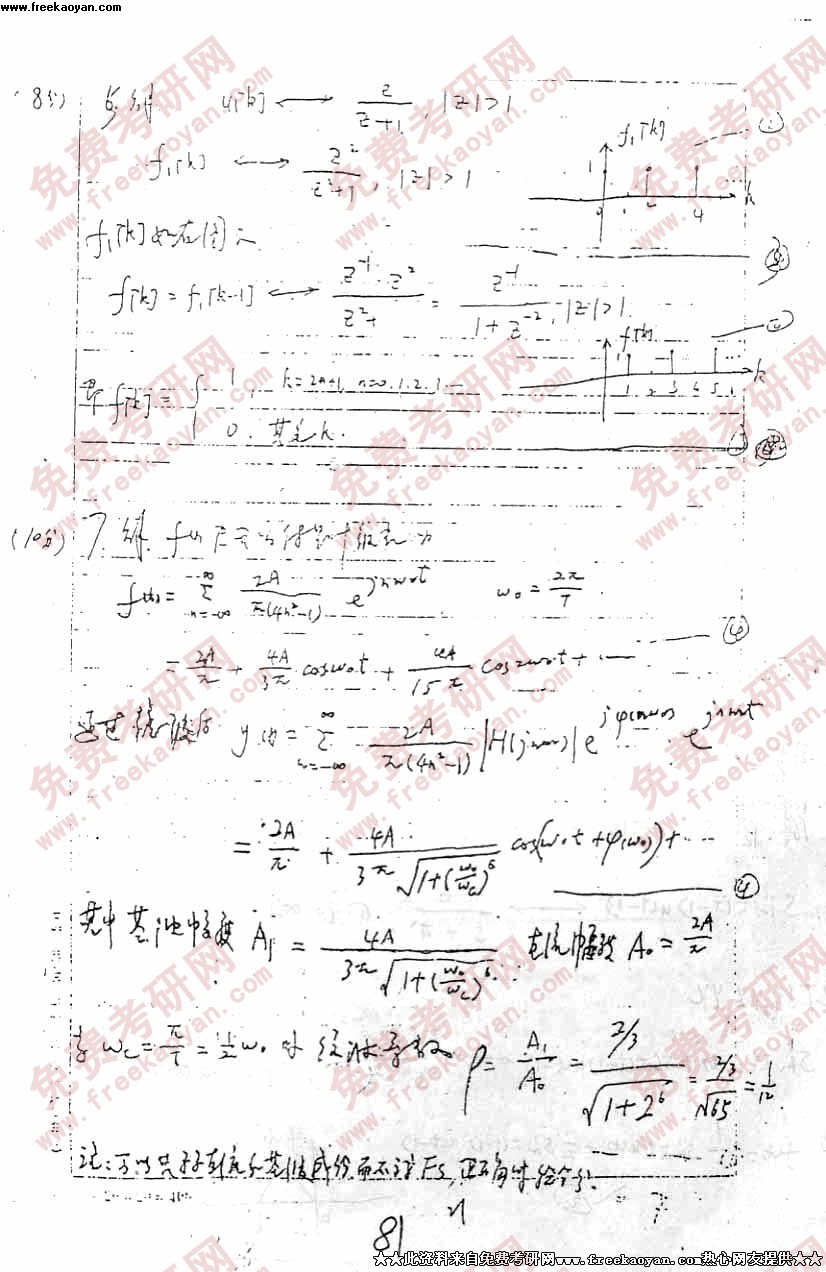 www.freekaoyan.com
(8分) 6. 解 u[k] ⟷ z/(z+1), |z|>1
f₁[k] ⟷ z²/(z²+1), |z|>1
f₁[k] 如右图:
f[k] = f₁[k-1] ⟷ z⁻¹·z²/(z²+ = z⁻¹/(1+z⁻²), |z|>1
即 f[k] = { 1, k=2n+1, n=0.1.2.
0. 其它k.
(10分) 7. 解. f(t)
f(t) = Σ 2A/(π(4n²-1)) e^{jnω₀t} ω₀ = 2π/T
= 2A/π + 4A/3π cosω₀t + 4A/15π cos2ω₀t + ⋯ ④
通过 滤波后 y(t) = Σ 2A/(π(4n²-1)) |H(jnω₀)| e^{jφ(nω₀)} e^{jnω₀t}
= 2A/π + 4A/(3π√(1+(ω₀/ω_c)⁶)) cos(ω₀t+φ(ω₀)) + ⋯ ④
其中 基波幅度 A₁ = 4A/(3π√(1+(ω₀/ω_c)⁶)) 直流幅度 A₀ = 2A/π
当 ω_c = π/T = 1/2 ω₀ 时 ρ = A₁/A₀ = (2/3)/√(1+2⁶) = (2/3)/√65 = 1/12
注: 可以只 直流和基波成份 而不 FS, 正确时给分.
81
★★此资料来自免费考研网www.freekaoyan.com热心网友提供★★